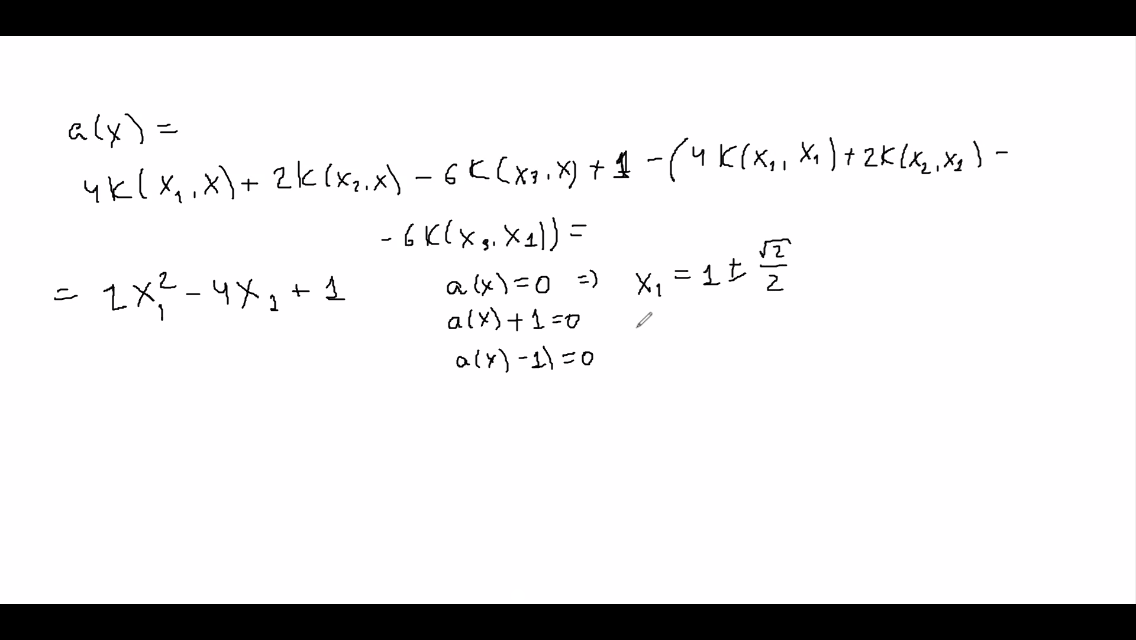 a(x) =
4K(x₁, x) + 2K(x₂, x) - 6K(x₃, x) + 1 - (4K(x₁, x₁) + 2K(x₂, x₁) -
- 6K(x₃, x₁)) =
= 2x₁² - 4x₁ + 1
a(x) = 0 => x₁ = 1 ± √2/2
a(x) + 1 = 0
a(x) - 1) = 0